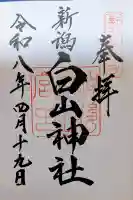 奉拝
新潟
白山神社
令和八年四月十九日